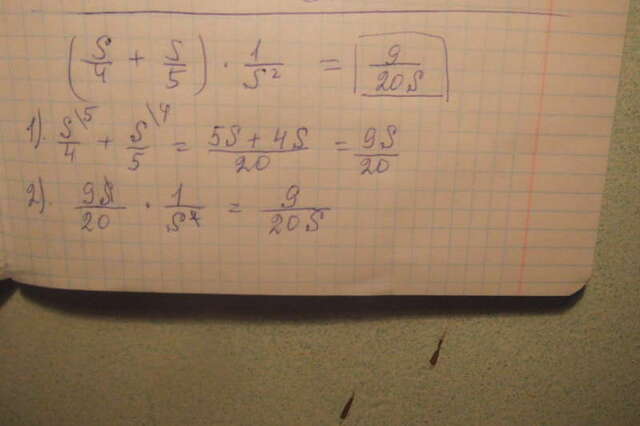 (S/4 + S/5) · 1/S² = 9/20S
1). S/4 \5 + S/5 \4 = 5S + 4S/20 = 9S/20
2). 9S/20 · 1/S² = 9/20S